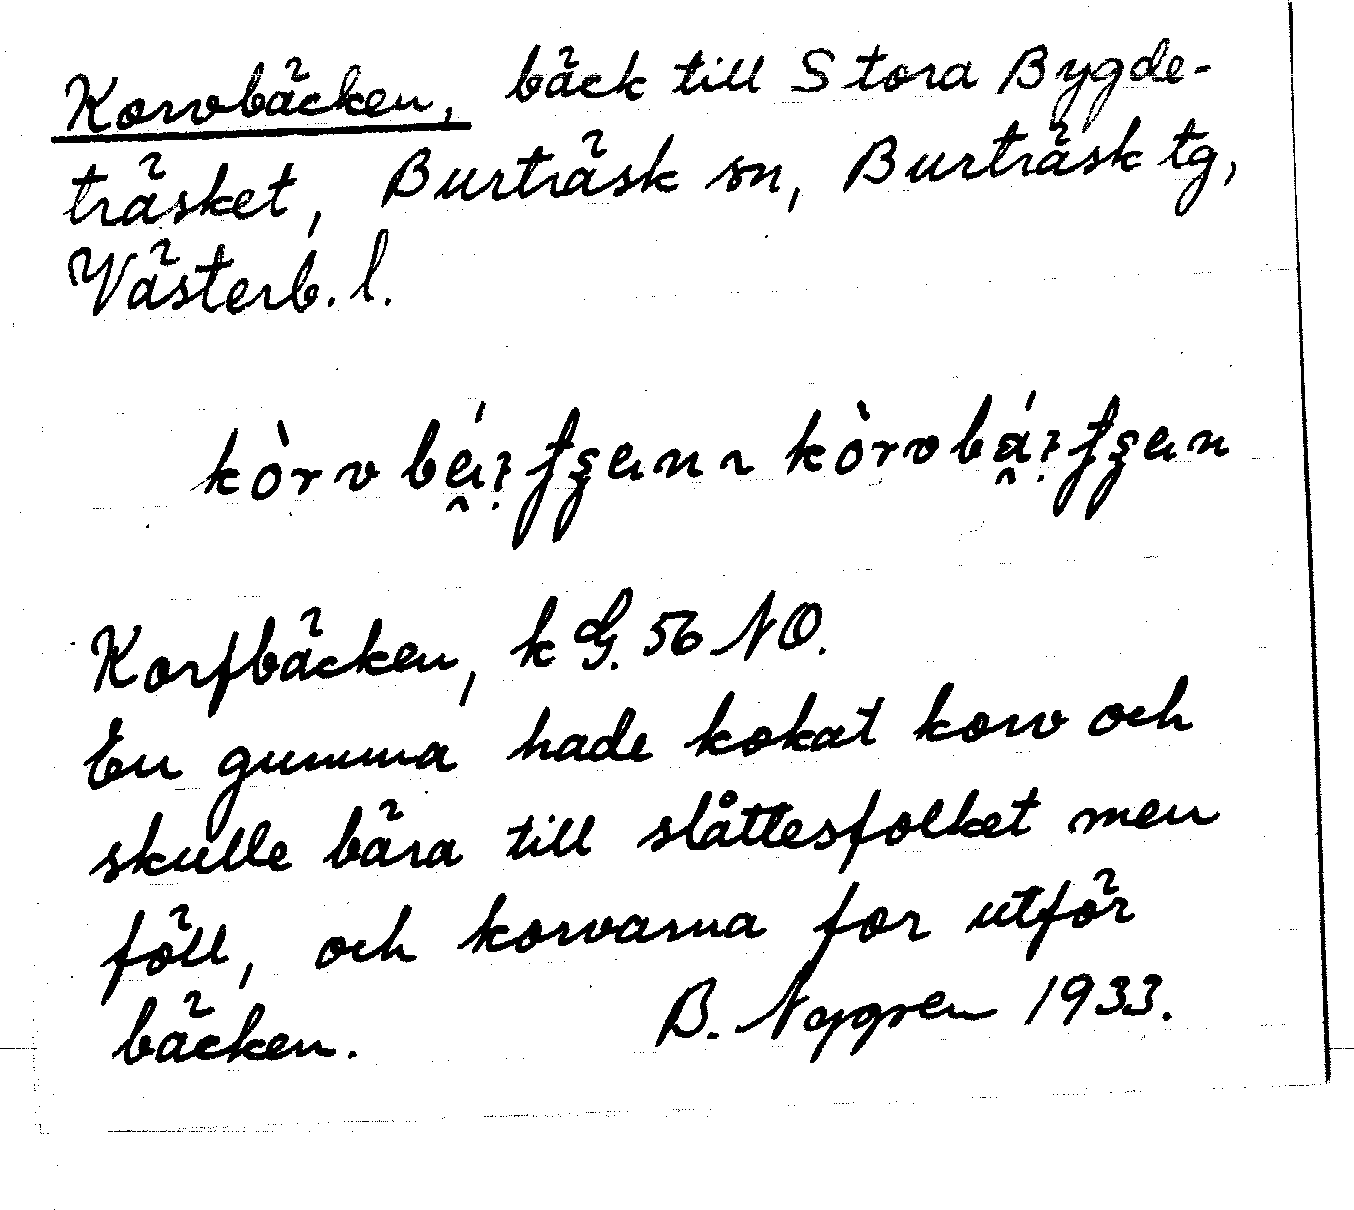 Korvbäcken, bäck till Stora Bygde-
träsket, Burträsk sn, Burträsk tg,
Västerb. l.
Korfbäcken, k G. 56 NO.
En gumma hade kokat korv och
skulle bära till slåttesfolket men
föll, och korvarna for utför
bäcken. B. Nygren 1933.